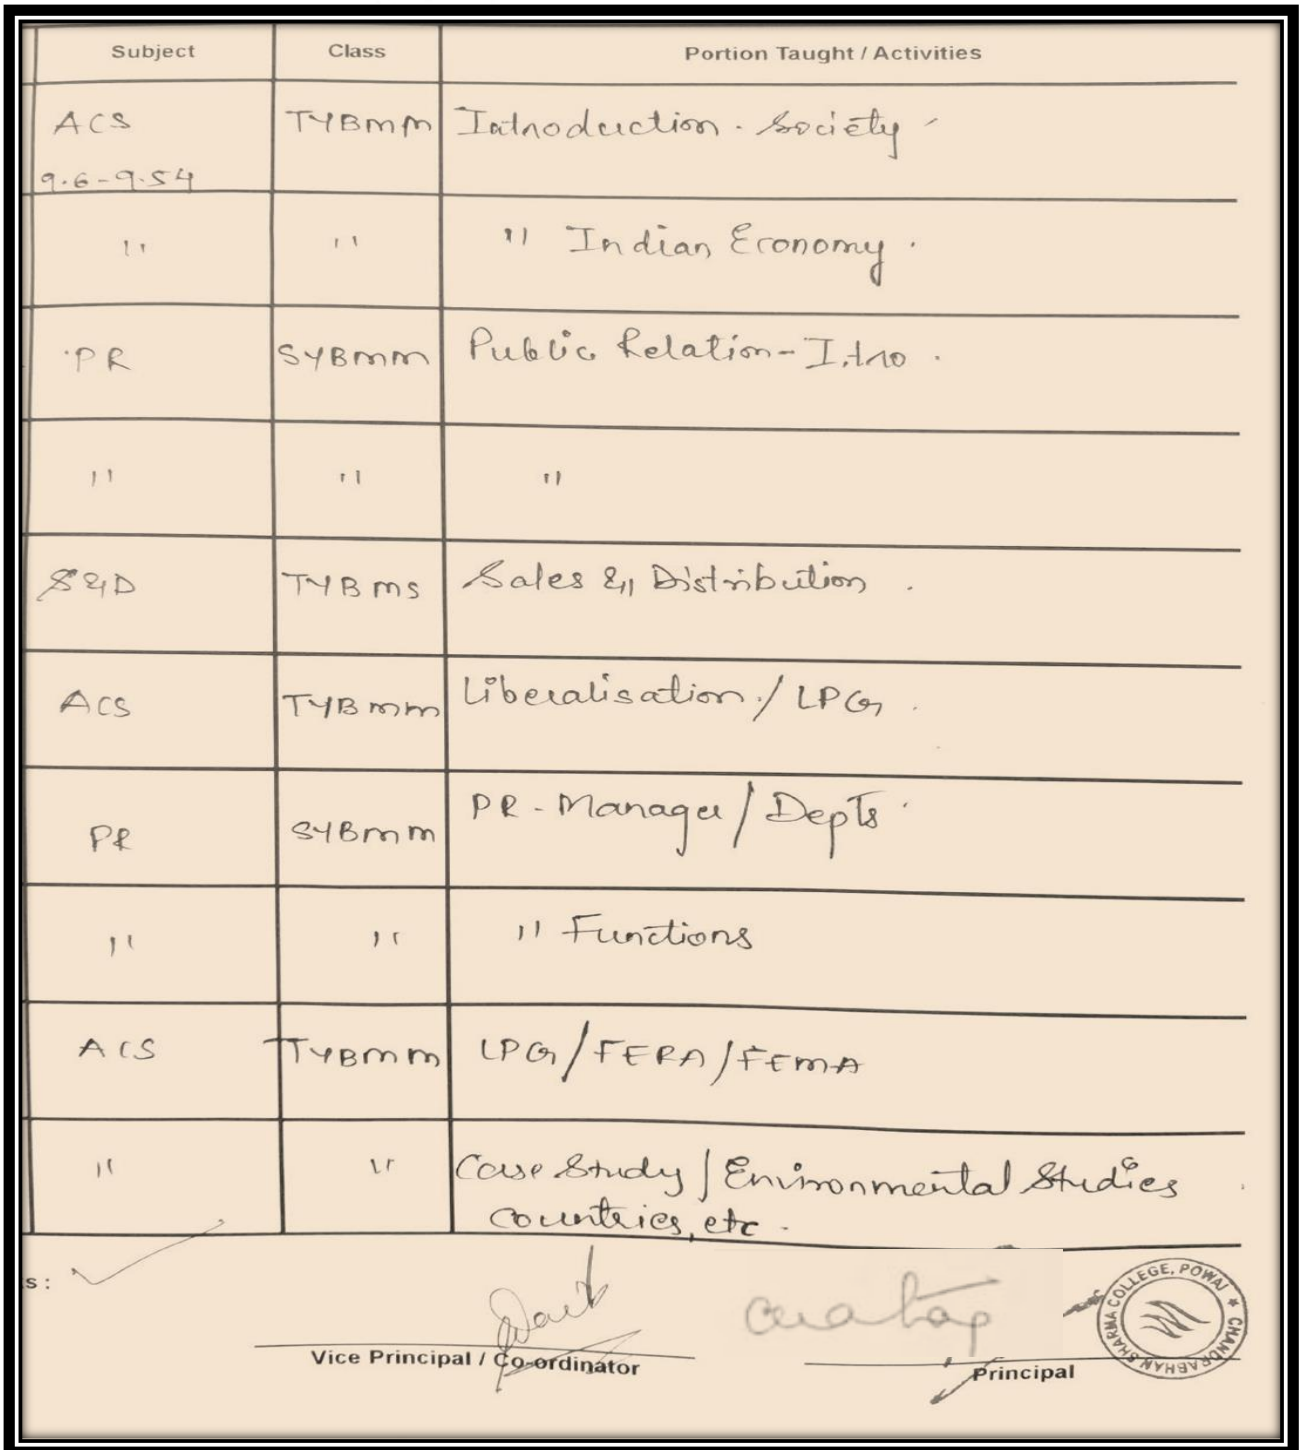 Subject Class Portion Taught / Activities
ACS TYBMM Introduction - Society
9.6-9.54
" " " Indian Economy.
PR SYBMM Public Relation - Intro.
" " "
S&D TYBMS Sales & Distribution.
ACS TYBMM Liberalisation / LPG.
PR SYBMM PR - Manager / Depts.
" " " Functions
ACS TYBMM LPG / FERA / FEMA
" " Case Study / Environmental Studies
countries, etc.
s:
Vice Principal / Co-ordinator
Principal
CHANDRABHAN SHARMA COLLEGE, POWAI